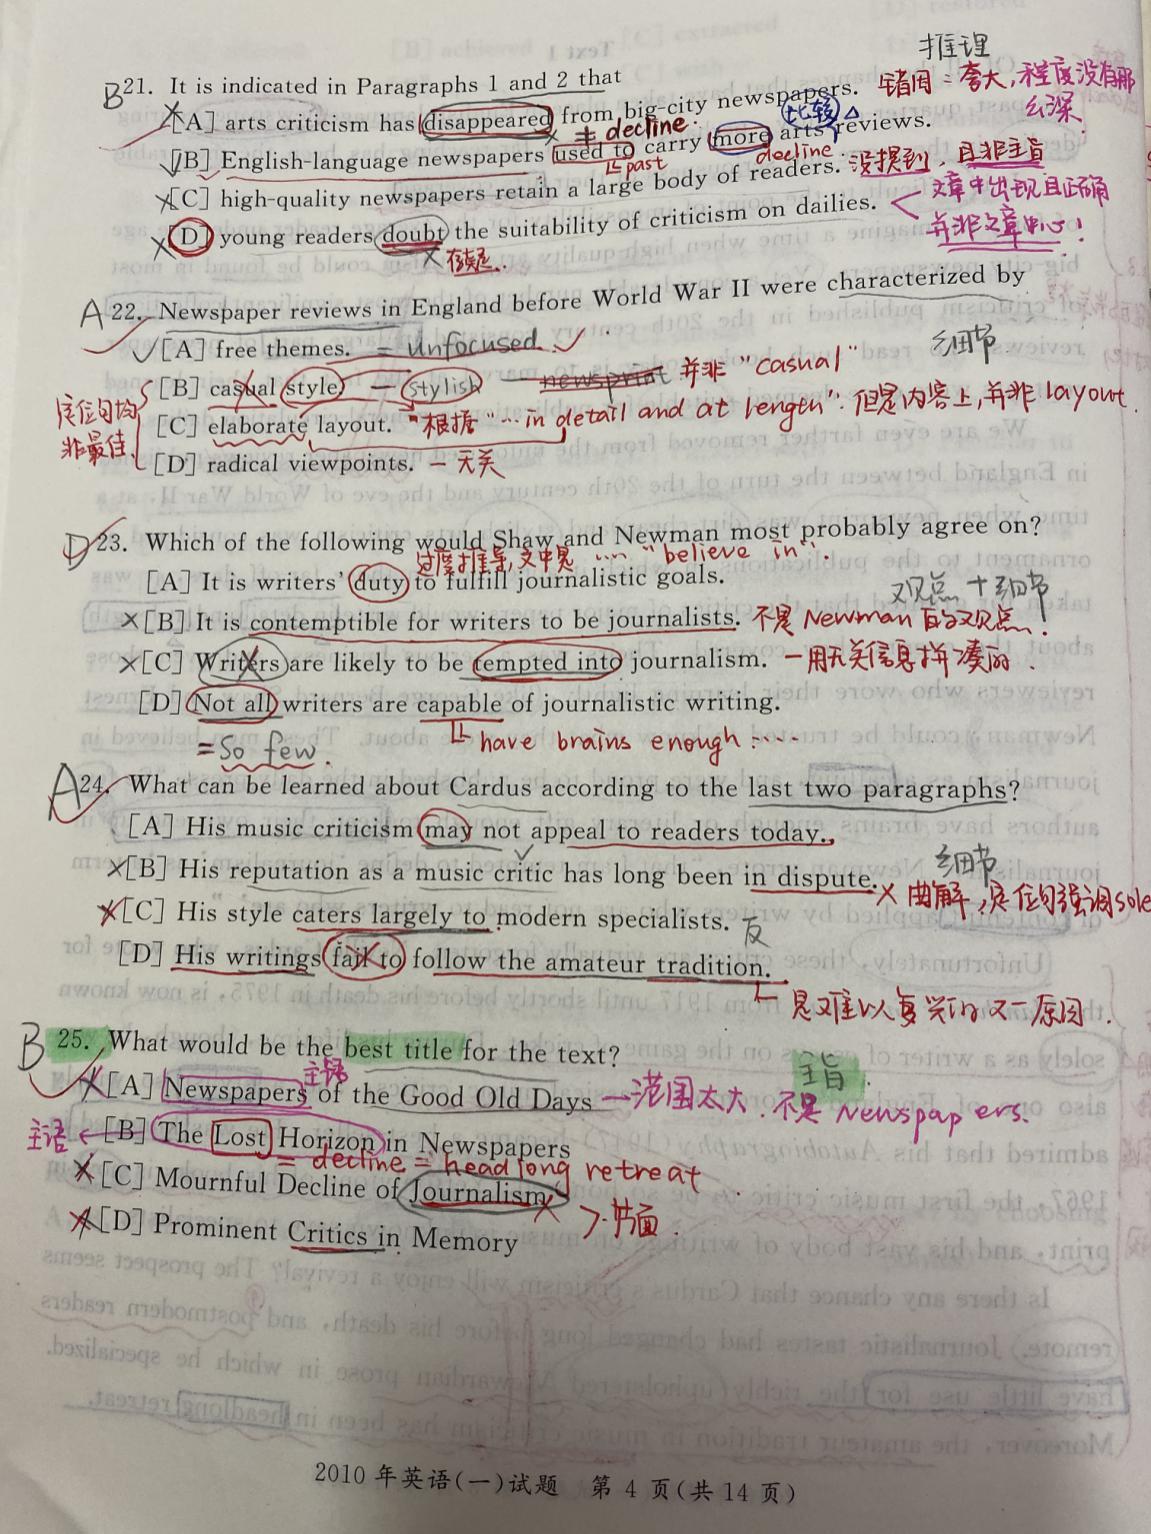 推理
B 21. It is indicated in Paragraphs 1 and 2 that
错因：夸大，程度没有那么深
[A] arts criticism has disappeared from big-city newspapers.
≠ decline. 比较
[B] English-language newspapers used to carry more arts reviews.
past decline.
[C] high-quality newspapers retain a large body of readers. 没提到，且非主旨
文章中出现且正确
并非文章中心！
[D] young readers doubt the suitability of criticism on dailies.
存疑..
A 22. Newspaper reviews in England before World War II were characterized by
细节
[A] free themes. = Unfocused.
[B] casual style — stylish 并非 "casual"
定位句均非最佳
[C] elaborate layout. 根据 "… in detail and at length": 但是内容上，并非 layout.
[D] radical viewpoints. — 无关
D 23. Which of the following would Shaw and Newman most probably agree on?
过度推导，文中是 …… "believe in".
[A] It is writers' duty to fulfill journalistic goals.
观点+细节
[B] It is contemptible for writers to be journalists. 不是 Newman 的观点.
[C] Writers are likely to be tempted into journalism. — 用无关信息拼凑的.
[D] Not all writers are capable of journalistic writing.
= So few. have brains enough ....
A 24. What can be learned about Cardus according to the last two paragraphs?
[A] His music criticism may not appeal to readers today.
细节
[B] His reputation as a music critic has long been in dispute. × 曲解，定位句强调sole
[C] His style caters largely to modern specialists. 反
[D] His writings fail to follow the amateur tradition.
是难以复兴的又一原因.
B 25. What would be the best title for the text?
主旨.
主语
[A] Newspapers of the Good Old Days — 范围太大. 不是 Newspapers.
主语 ← [B] The Lost Horizon in Newspapers
= decline = headlong retreat
[C] Mournful Decline of Journalism
>片面.
[D] Prominent Critics in Memory
2010年英语(一)试题 第4页(共14页)